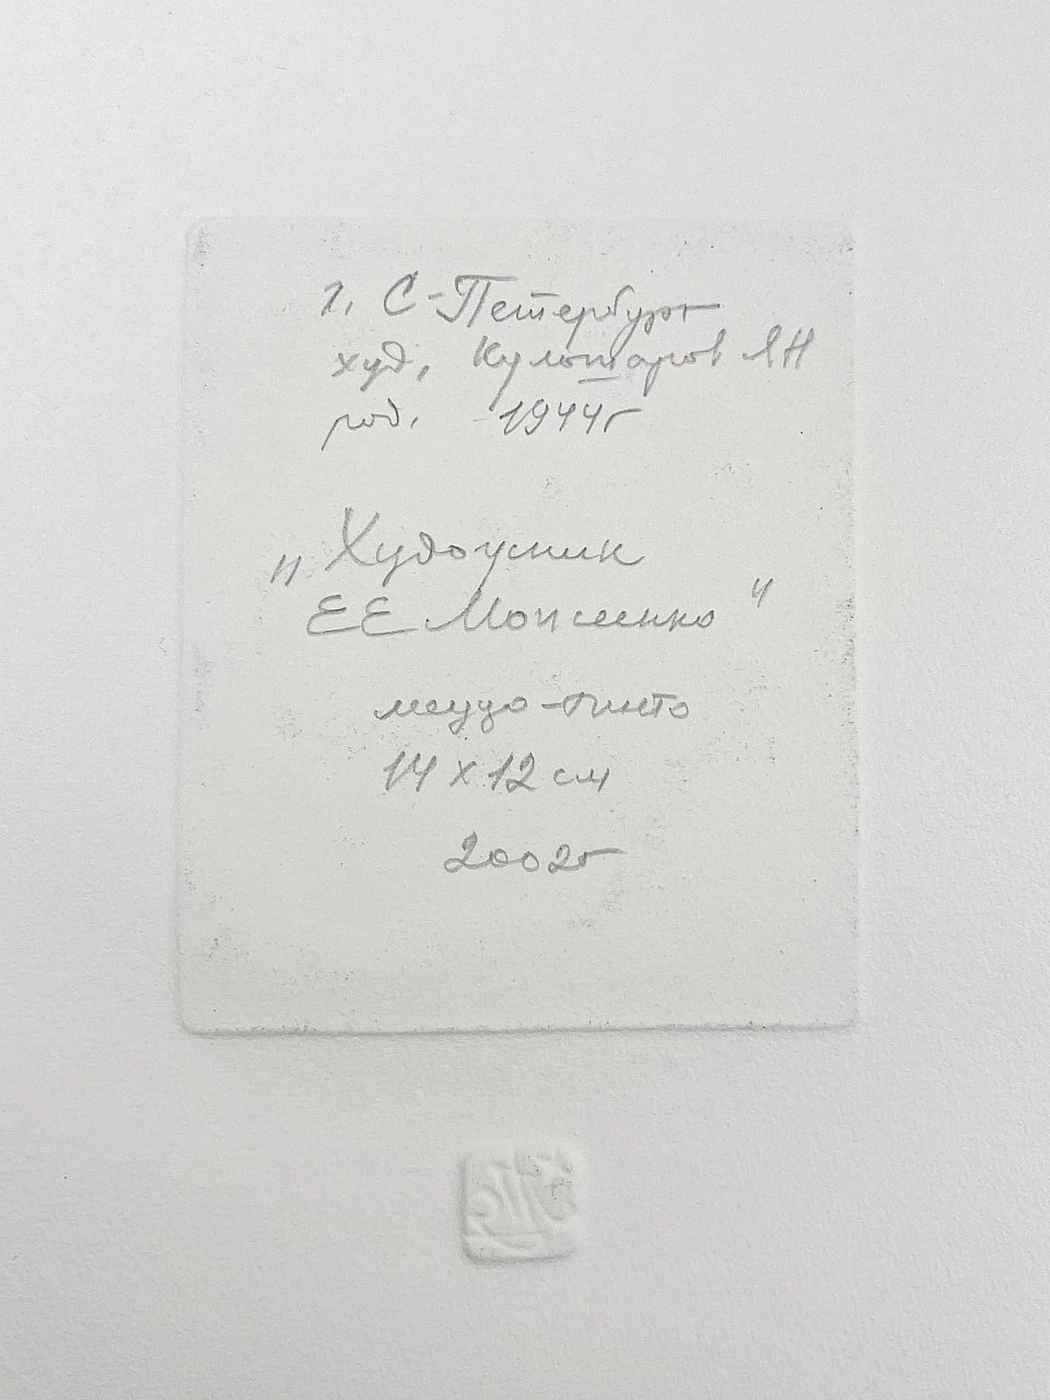 г. С-Петербург
худ. Кулютаров ЯН
род. - 1944г
„Художник
ЕЕ Моисеенко"
меццо-тинто
14 x 12 см
2002г